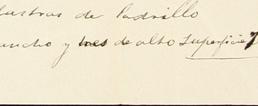 lustras de ladrillo
ancho y tres de alto superficie 7